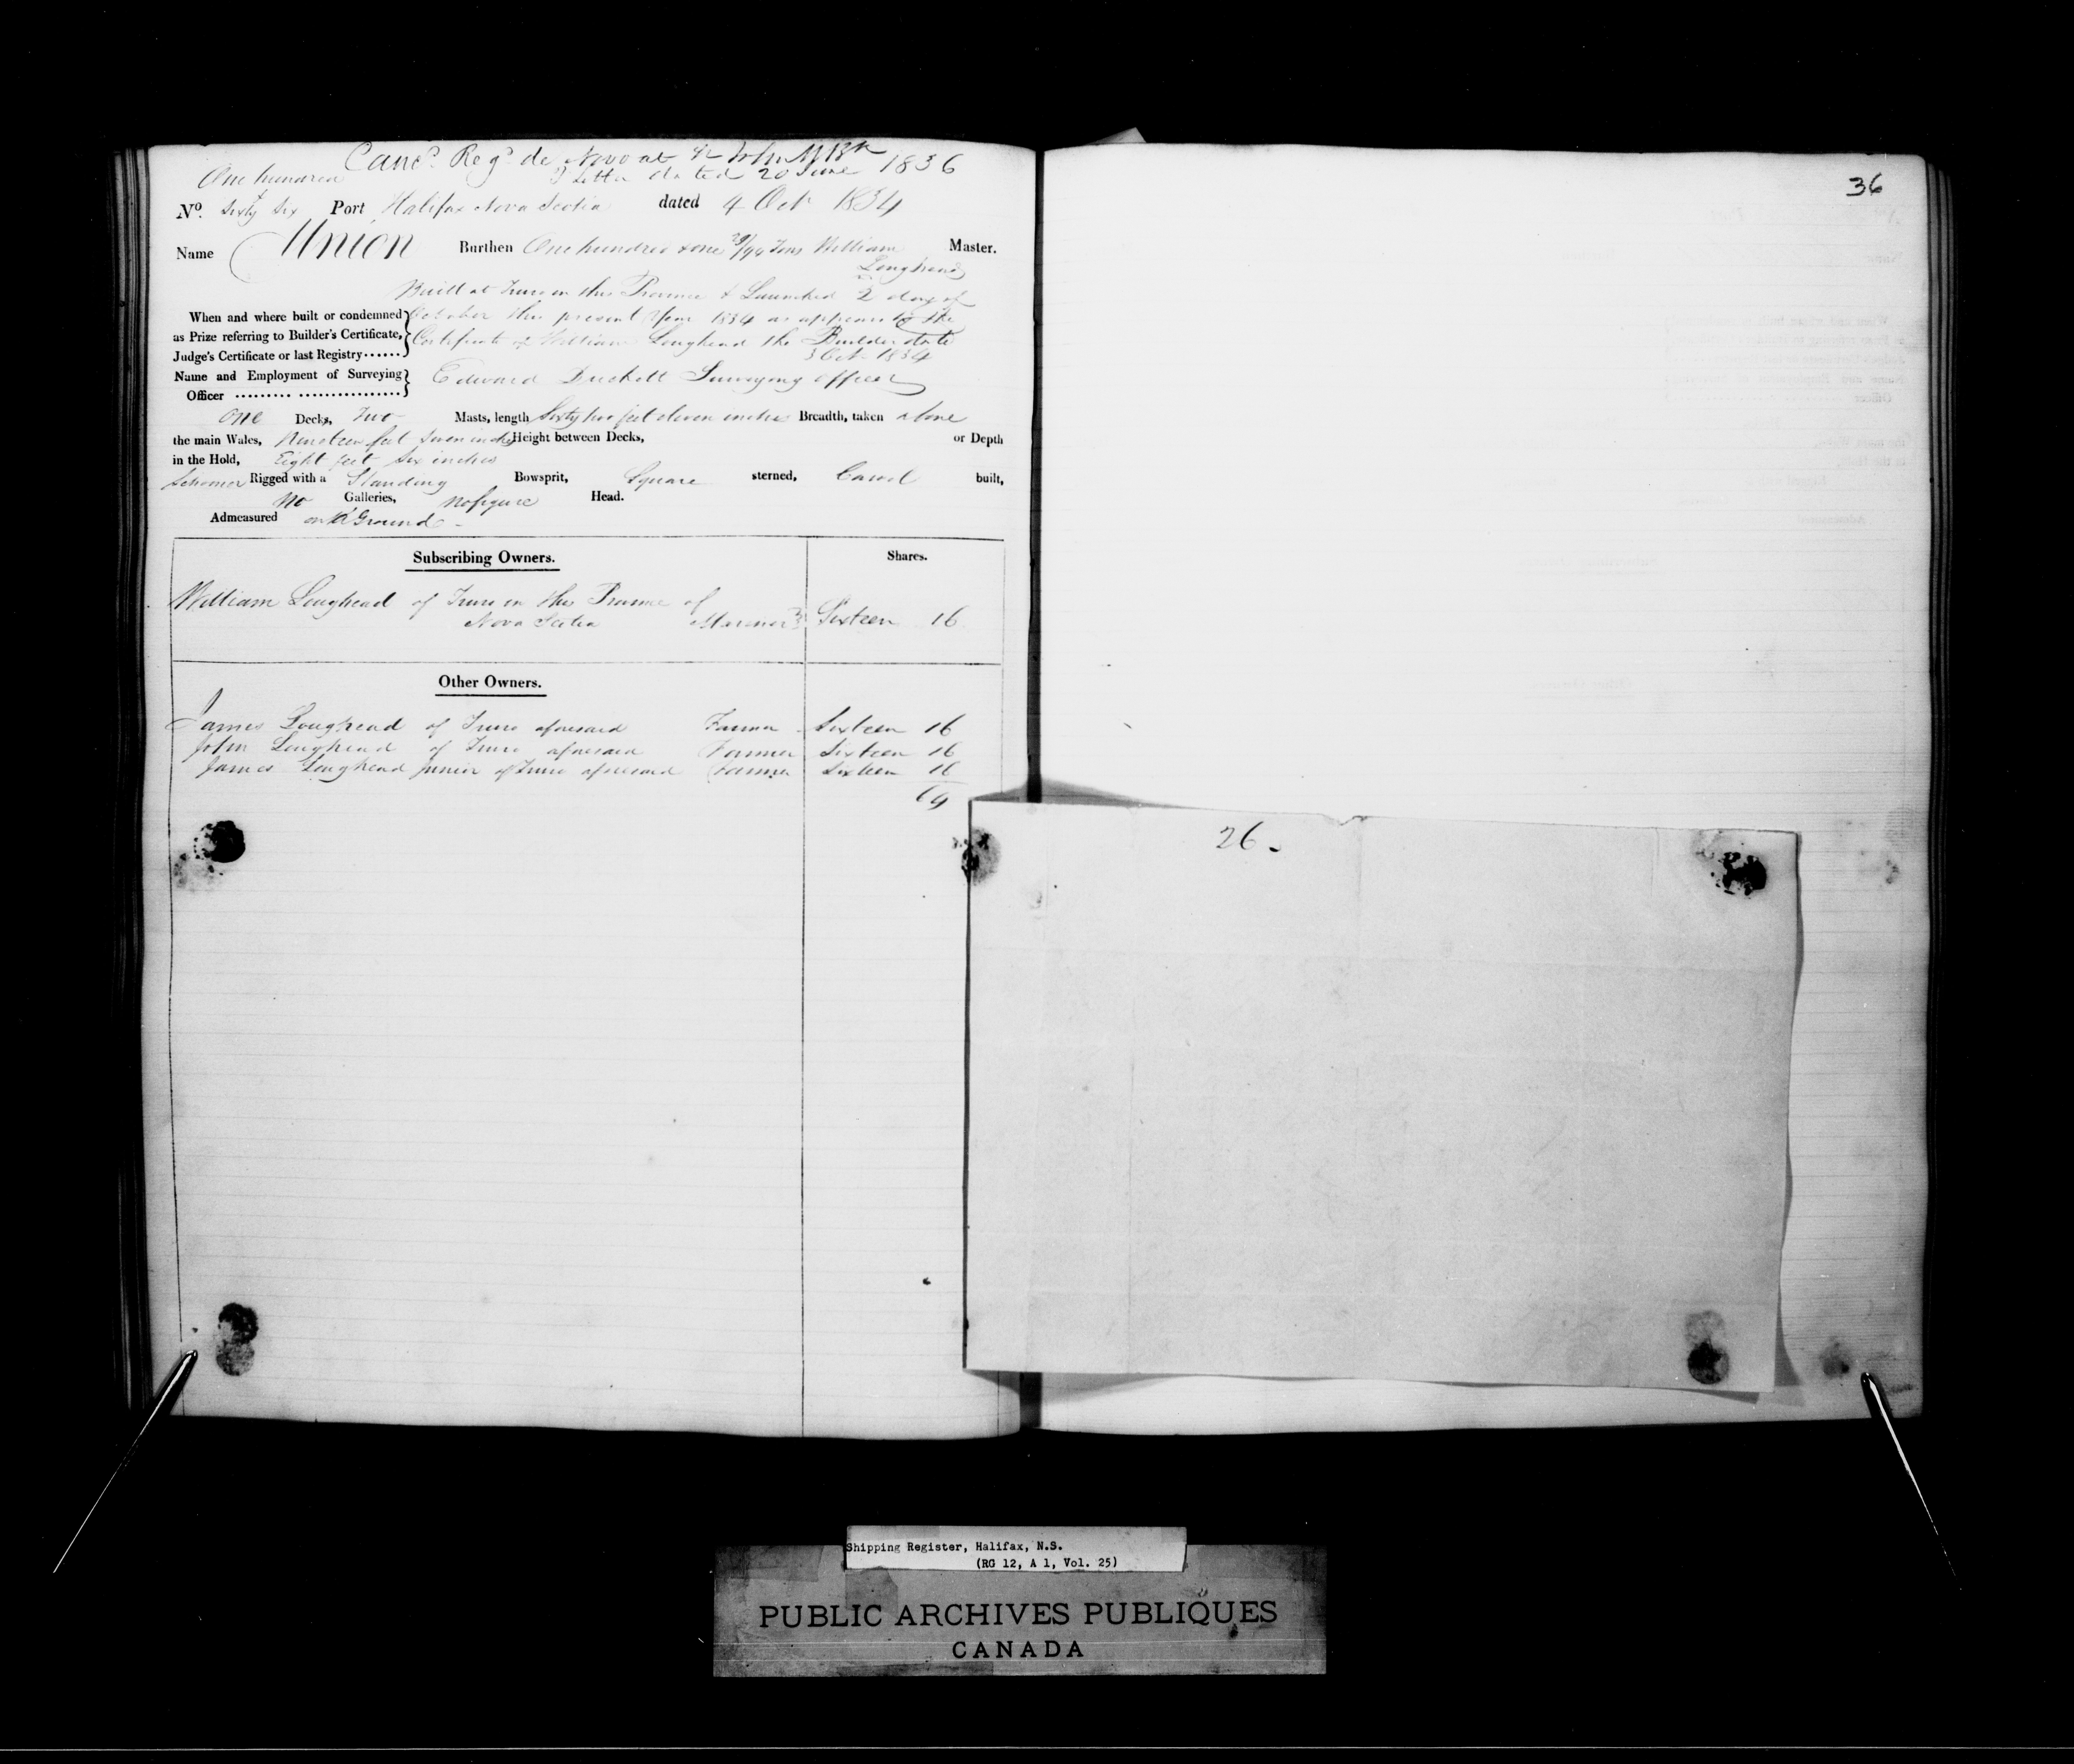 Canc.d Reg.d de Novo at St John N Bk 1836
One hundred & Letter dated 20 June
No. Sixty Six Port Halifax Nova Scotia dated 4 Oct 1834
Name Union Burthen One hundred & one 29/94 Tons William Loughead Master.
Built at Truro in this Province & Launched 2 day of
When and where built or condemned October this present Year 1834 as appears by the
as Prize referring to Builder's Certificate, Certificate of William Loughead the Builder date
Judge's Certificate or last Registry...... 3 Oct 1834
Name and Employment of Surveying Edward Duckett Surveying officer
Officer
One Decks, Two Masts, length Sixty two feet eleven inches Breadth, taken above
the main Wales, Nineteen feet Seven inches Height between Decks, or Depth
in the Hold, Eight feet Six inches
Schooner Rigged with a Standing Bowsprit, Square sterned, Carvel built,
No Galleries, No figure Head.
Admeasured on Ground
Subscribing Owners. Shares.
William Loughead of Truro in the Province of
Nova Scotia Mariner Sixteen 16
Other Owners.
James Loughead of Truro aforesaid Farmer Sixteen 16
John Loughead of Truro aforesaid Farmer Sixteen 16
James Loughead Junior of Truro aforesaid Farmer Sixteen 16
64
36
26.
Shipping Register, Halifax, N.S.
(RG 12, A 1, Vol. 25)
PUBLIC ARCHIVES PUBLIQUES
CANADA